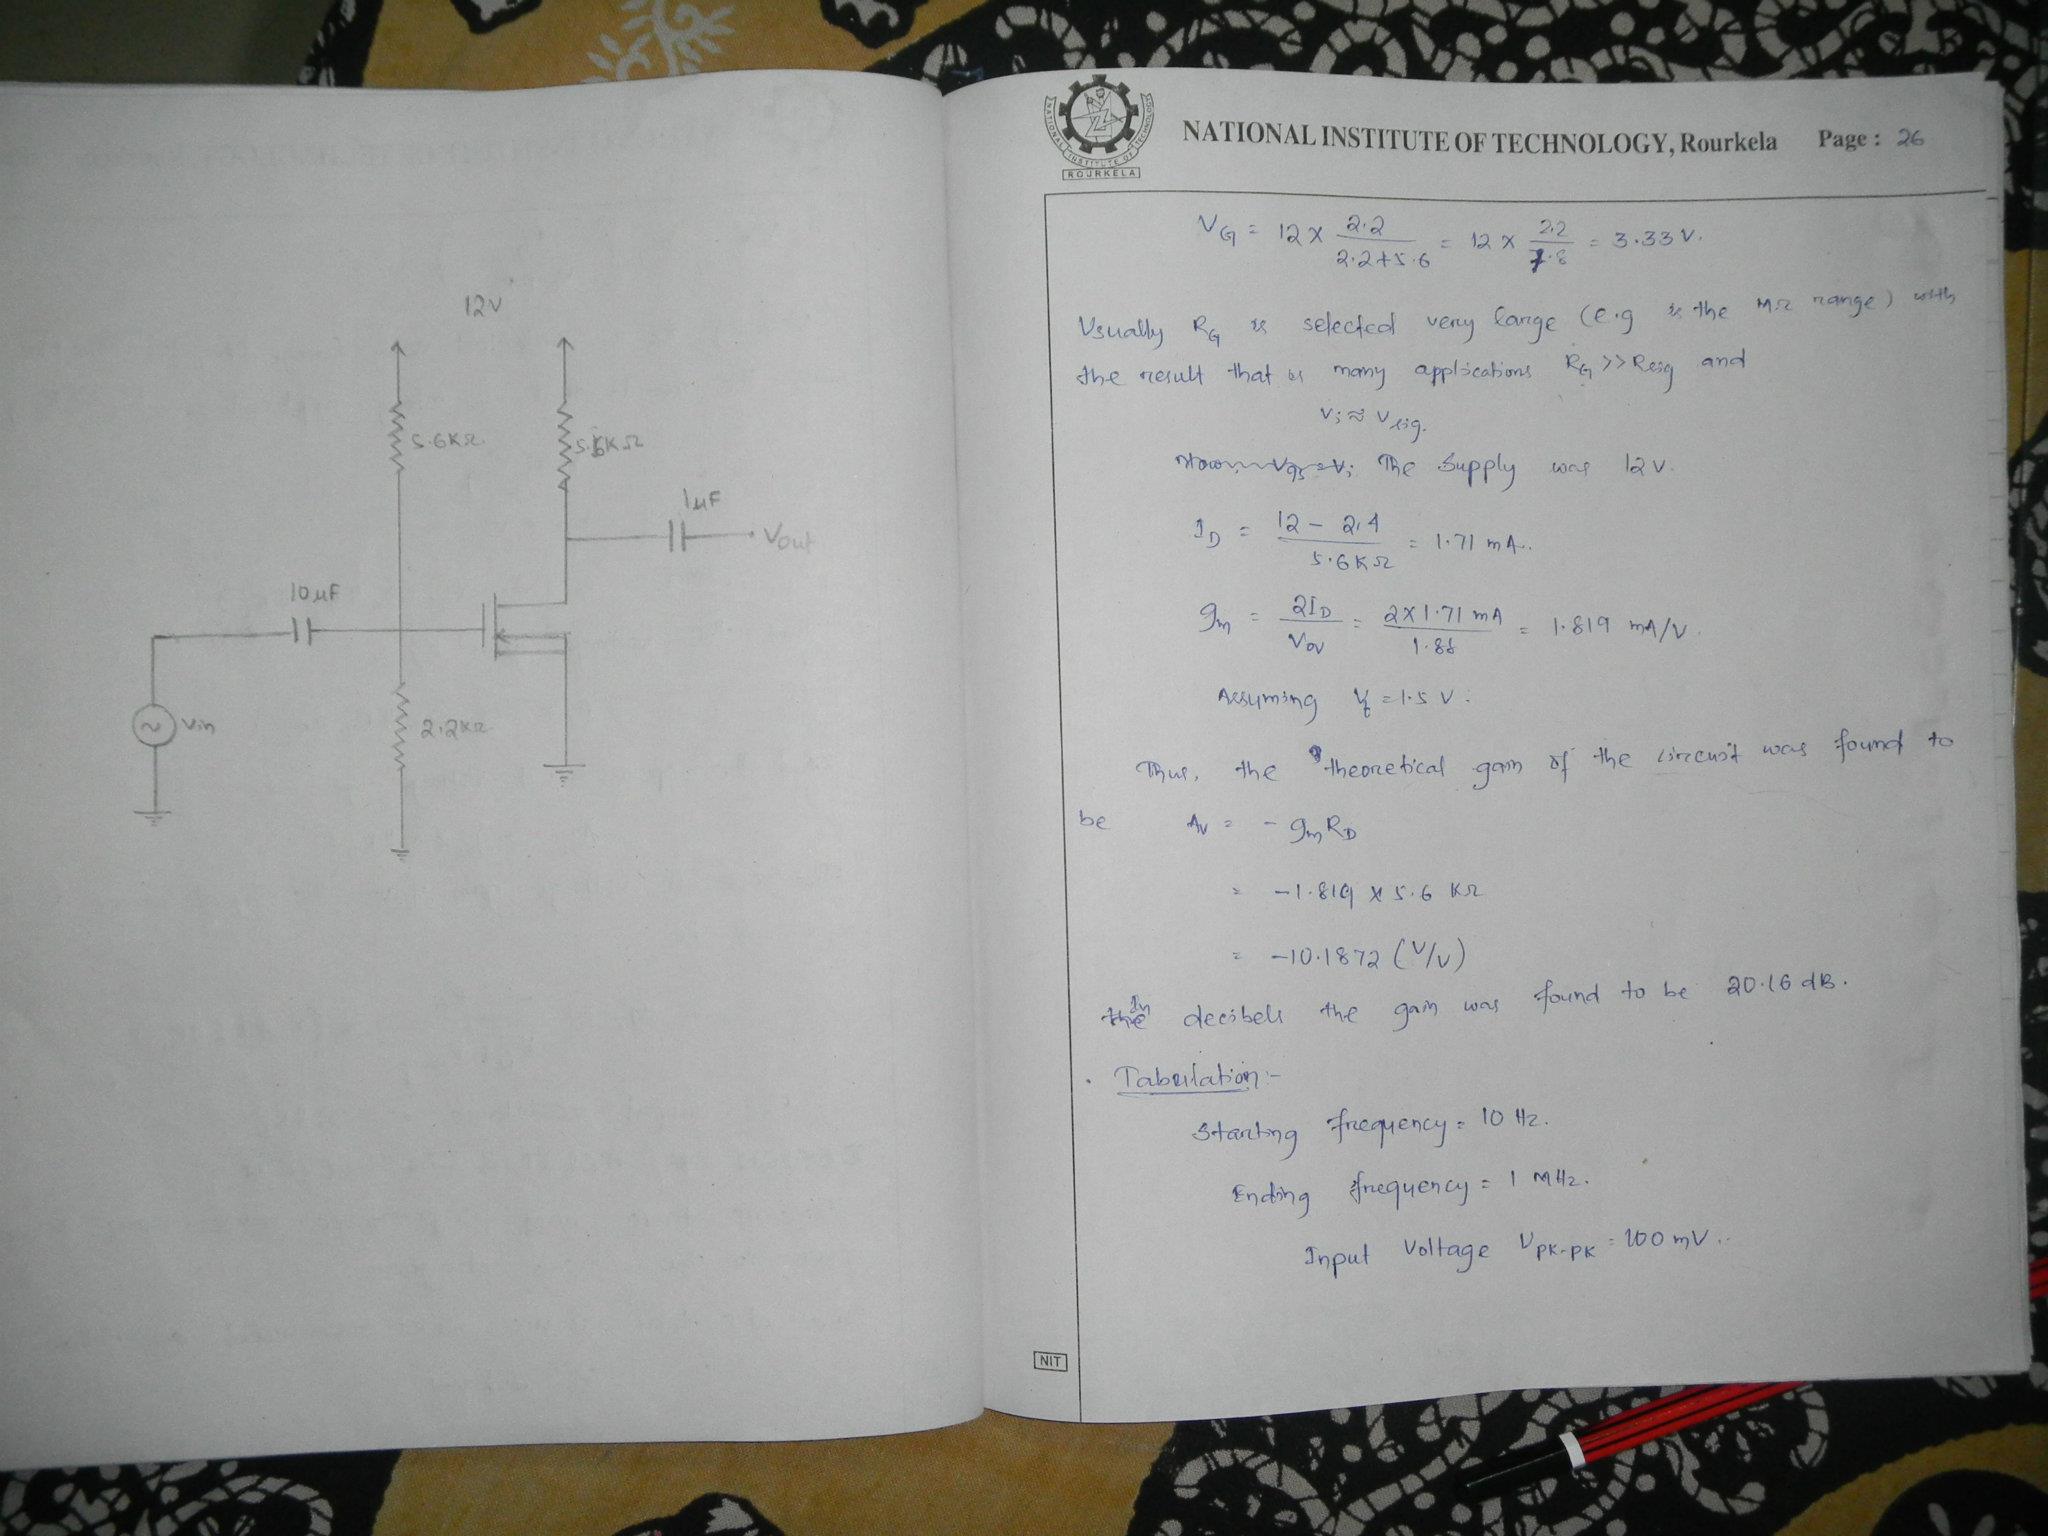 12V
5.6KΩ
5.6KΩ
1μF
Vout
10μF
Vin
2.2KΩ
NATIONAL INSTITUTE OF TECHNOLOGY
ROURKELA
NATIONAL INSTITUTE OF TECHNOLOGY, Rourkela Page : 26
VG = 12 x 2.2 / 2.2+5.6 = 12 x 2.2 / 7.8 = 3.33 V.
Usually RG is selected very large (e.g is the MΩ range) with
the result that is many applications RG >> Rsig and
Vi ≈ Vsig.
The Supply was 12 V.
ID = 12 - 2.4 / 5.6KΩ = 1.71 mA.
gm = 2ID / VOV = 2x1.71 mA / 1.88 = 1.819 mA/V.
Assuming Vt = 1.5 V.
Thus, the theoretical gain of the circuit was found to
be Av = - gm RD
= -1.819 x 5.6 KΩ
= -10.1872 (V/V)
In decibels the gain was found to be 20.16 dB.
Tabulation:-
Starting frequency = 10 Hz.
Ending frequency = 1 MHz.
Input Voltage Vpk-pk = 100 mV.
NIT